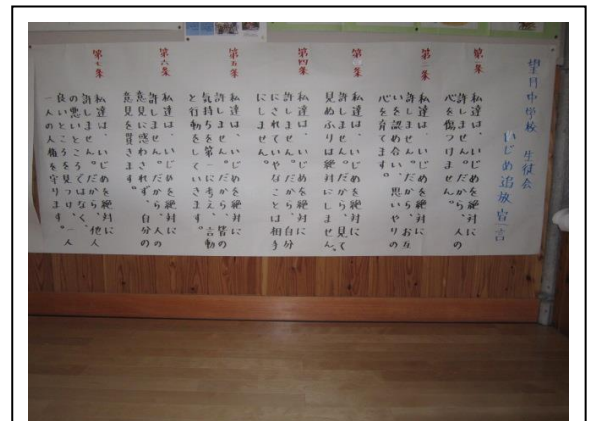 望月中学校　生徒会
いじめ追放宣言
第一条
私達は、いじめを絶対に
許しません。だから、人の
心を傷つけません。
第二条
私達は、いじめを絶対に
許しません。だから、お互
いを認め合い、思いやりの
心を育てます。
第三条
私達は、いじめを絶対に
許しません。だから、見て
見ぬふりは絶対にしません。
第四条
私達は、いじめを絶対に
許しません。だから、自分
にされていやなことは相手
にしません。
第五条
私達は、いじめを絶対に
許しません。だから、皆の
気持ちを第一に考え、言動
と行動をしていきます。
第六条
私達は、いじめを絶対に
許しません。だから、人の
意見に惑わされず、自分の
意見を貫きます。
第七条
私達は、いじめを絶対に
許しません。だから、他人
の悪いところではなく、
良いところを見つけ、一人
一人の人権を守ります。